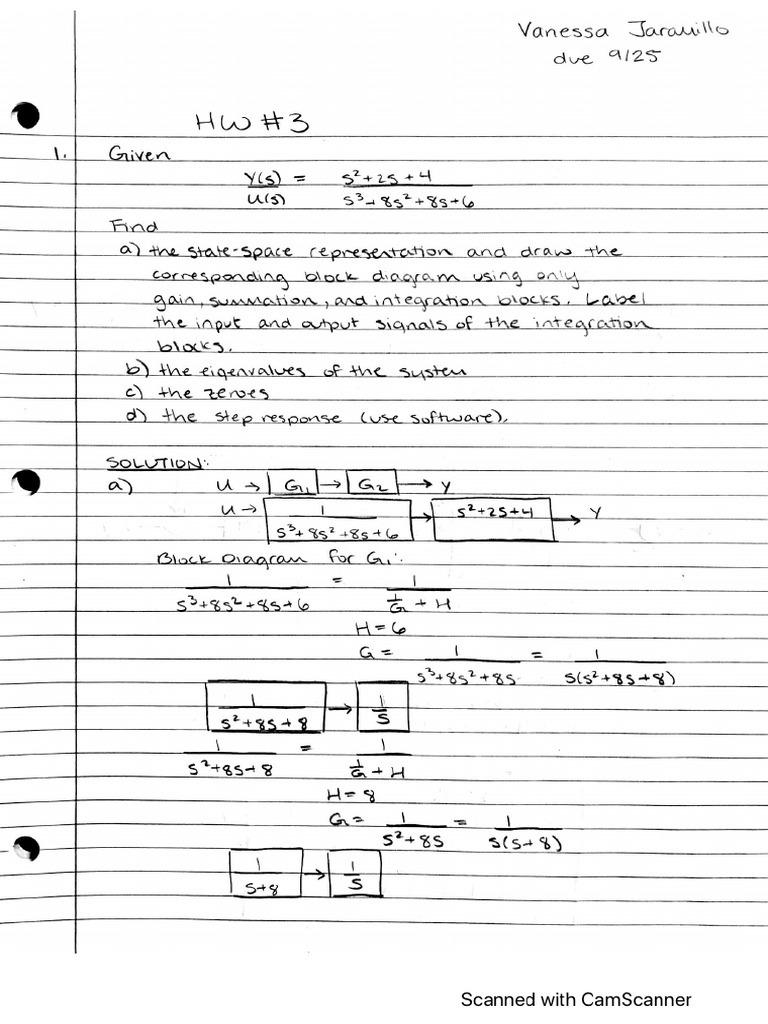 Vanessa Jaramillo
due 9/25
HW #3
1. Given
Y(s) = s²+2s+4
U(s) s³+8s²+8s+6
Find
a) the state-space representation and draw the
corresponding block diagram using only
gain, summation, and integration blocks. Label
the input and output signals of the integration
blocks.
b) the eigenvalues of the system
c) the zeroes
d) the step response (use software).
SOLUTION:
a) U → G₁ → G₂ → Y
U → 1 / s³+8s²+8s+6 → s²+2s+4 → Y
Block Diagram for G₁:
1 / s³+8s²+8s+6 = 1 / 1/G + H
H=6
G= 1 / s³+8s²+8s = 1 / s(s²+8s+8)
1 / s²+8s+8 → 1/s
1 / s²+8s+8 = 1 / 1/G + H
H=8
G= 1 / s²+8s = 1 / s(s+8)
1 / s+8 → 1/s
Scanned with CamScanner